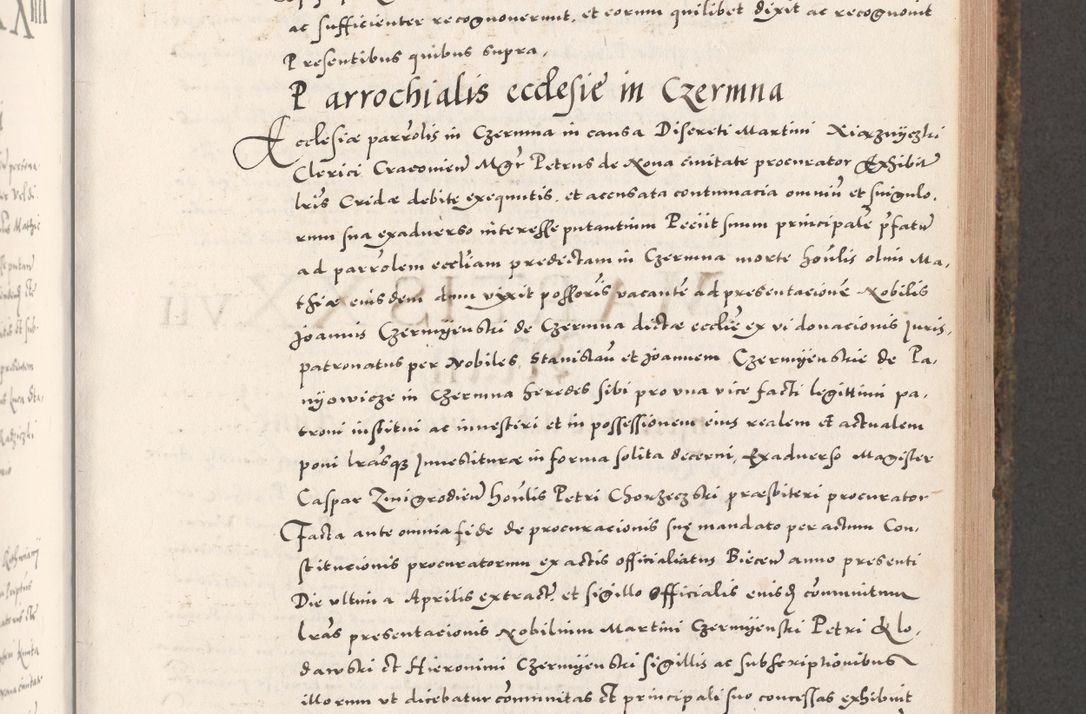 ac sufficienter recognoverunt, et eorum quilibet dixit ac recognovit
Presentibus quibus supra.
Parrochialis ecclesie in Czermna
Ecclesiæ parrolis in Czermna in causa Discreti Martini Xiazniczki
Clerici Cracovien Mgr Petrus de Nova civitate procurator Exhibit
lris Cridæ debite exequutis, et accusata contumacia omniu et singulo,
rum sua exadverso interesse putantium Peciit suum principale pfatu
ad parrolem eccliam predictam in Czermna morte honlis olim Ma,
thiæ eiusdem dum vixit possoris vacante ad presentacione Nobilis
Joannis Czermijenski de Czermna dictæ ecclie ex vi donacionis Juris,
patronatus per Nobiles Stanislau et Joannem Czermijenskie de Pa,
nijowicze in Czermna heredes sibi pro una vice facti legittimi pa,
troni institui ac investiri et in possessionem eius realem et actualem
poni lrasqz Investituræ in forma solita decerni, Exadverso Magister
Caspar Zmigrodien honlis Petri Chorzeczski præsbiteri procurator
Facta ante omnia fide de procuracionis suę mandato per actum Con,
stitucionis procuratorum ex actis officialiatus Biecen anno presenti
Die ultima Aprilis extract et sigillo Officialis eiusd communitum
lras presentacionis Nobilium Martini Czermijenski Petri &lo,
dawski et Hieronimi Czermijenski sigillis ac subscriptionibus
illorum ut dicebatur communitas et principali suo concessas exhibuit